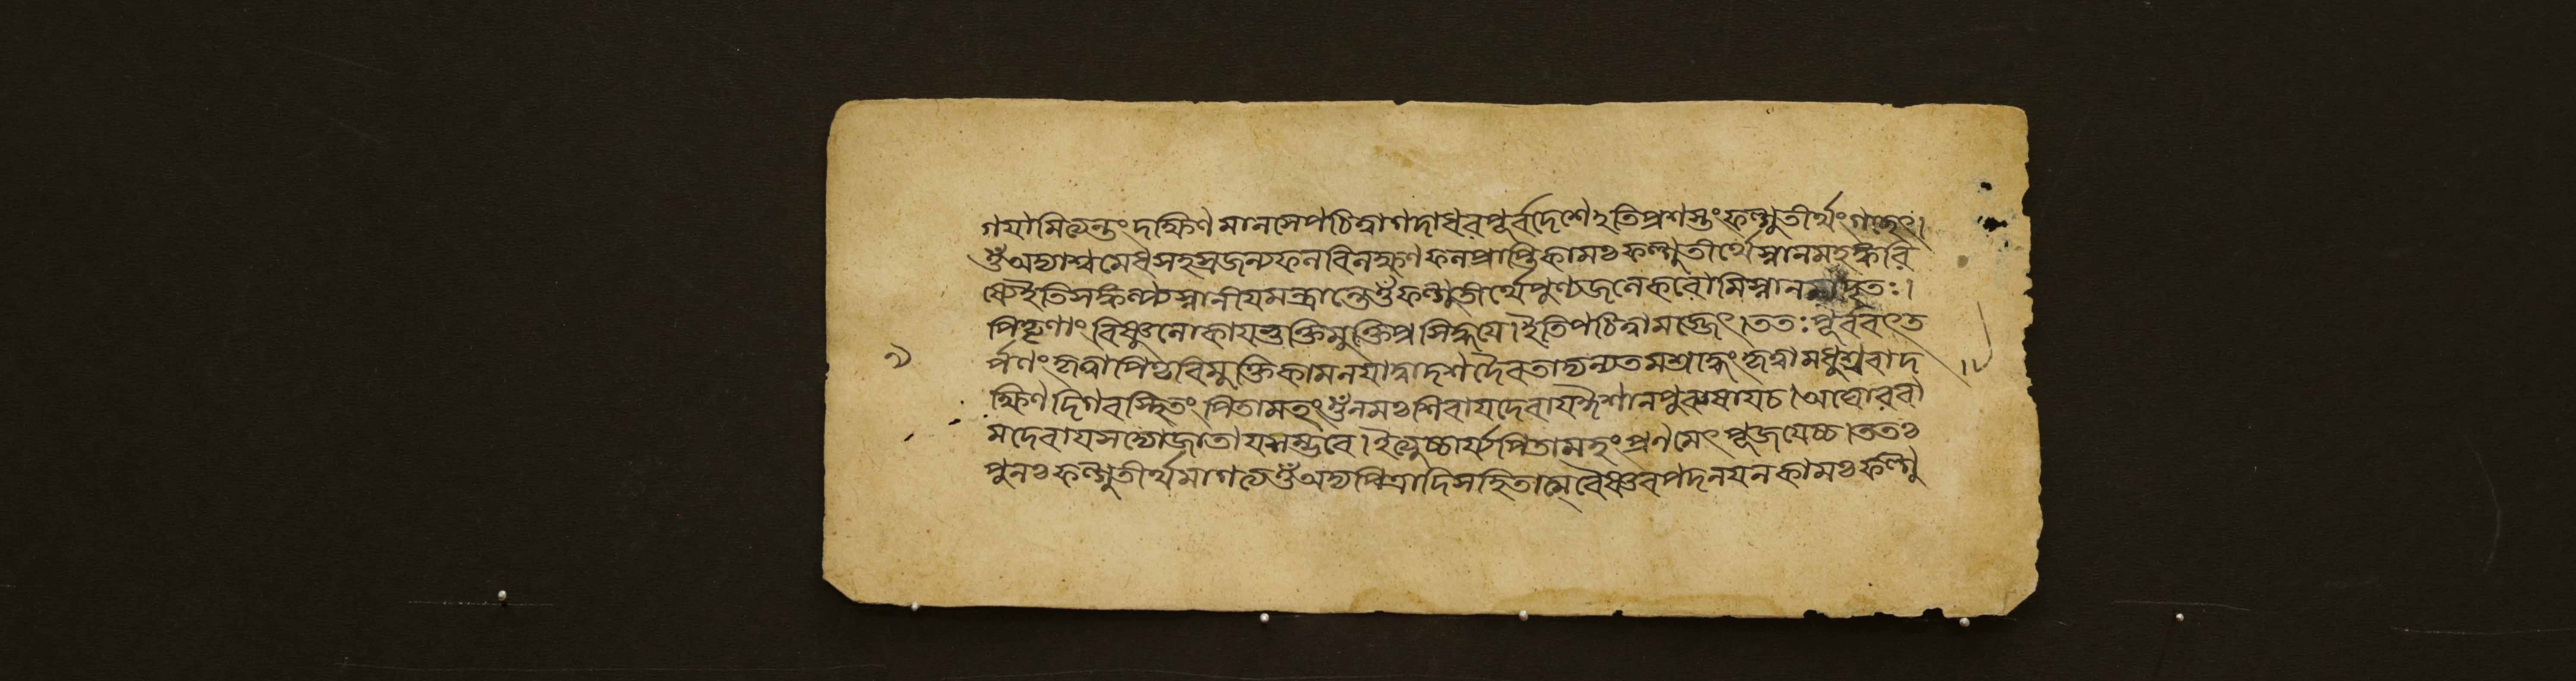 গযামিত্যন্তং দক্ষিণমানসে পঠিত্বা গদাধরপূর্ব্বদেশেঽতিপ্রশস্তং ফল্গুতীর্থং গচ্ছেৎ।
ওঁ অদ্যাশ্বমেধসহস্রজন্যফলবিলক্ষণফলপ্রাপ্তিকামঃ ফল্গুতীর্থে স্নানমহঙ্করি
ষ্যে ইতি সঙ্কল্প্য স্নানীযমন্ত্রান্তে ওঁ ফল্গুতীর্থে পুণ্যজলে করোমি স্নানমাদৃতঃ।
পিতৄণাং বিষ্ণুলোকায ভুক্তিমুক্তিপ্রসিদ্ধযে। ইতি পঠিত্বা মজ্জেৎ। ততঃ পূর্ব্ববৎ ত
র্পণং কৃত্বা পিণ্ডবিমুক্তিকামনযা দ্বাদশদৈবতাদ্যন্যতমশ্রাদ্ধং কৃত্বা মধুশ্রবাদ
ক্ষিণদিগবস্থিতং পিতামহং ওঁ নমঃ শিবায দেবায ঈশানপুরুষায চ। অঘোরবা
মদেবায সদ্যোজাতায শম্ভবে। ইত্যুচ্চার্য্য পিতামহং প্রণমেৎ পূজযেচ্চ। ততঃ
পুনঃ ফল্গুতীর্থমাগত্য ওঁ অদ্য পিত্রাদিসহিতাত্মবৈষ্ণবপদনযনকামঃ ফল্গু